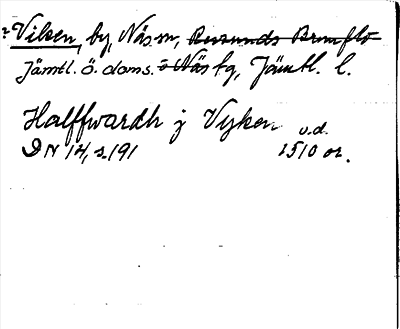 ? Viken, by, Näs sn, Brunflo
Jämtl. ö. doms. o Näs tg, Jämtl. l.
Halffwardh j Vyken u.d.
DN 14, s. 191 1510 or.